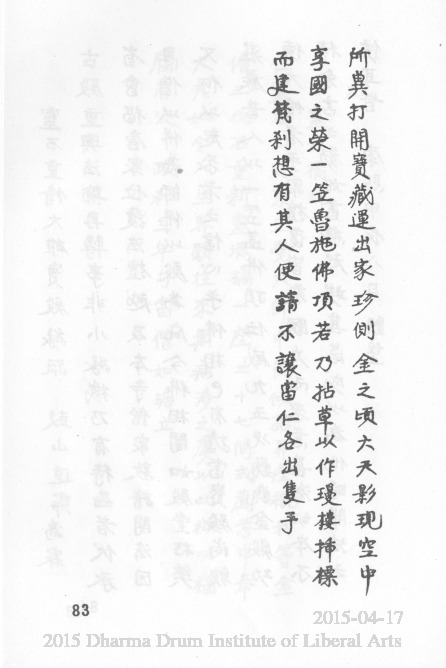 所冀打開寶藏運出家珍側金之頃六天影現空中
享國之榮一笠曾施佛頂若乃拈草以作瓊樓挿標
而建梵刹想有其人便請不讓當仁各出隻手
83
2015-04-17
2015 Dharma Drum Institute of Liberal Arts